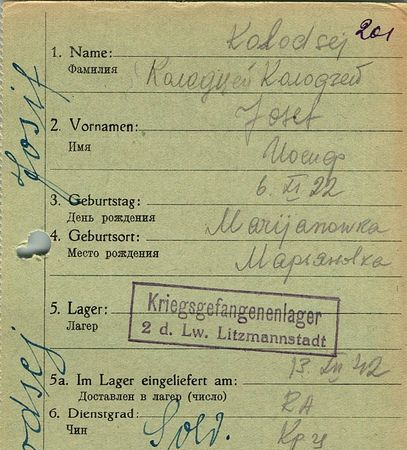 Kolodsej 201
1. Name:
Фамилия
Колодцей Колодзей
2. Vornamen:
Josef
Имя
Иосиф
6. XI 22
3. Geburtstag:
День рождения
Marijanowka
4. Geburtsort:
Место рождения
Маріяновка
5. Lager:
Лагер
Kriegsgefangenenlager
2 d. Lw. Litzmannstadt
13. XII 42
5a. Im Lager eingeliefert am:
Доставлен в лагер (число)
RA
6. Dienstgrad:
Чин
Sold.
Josif